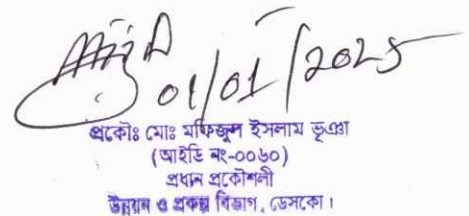 01/01/2025
প্রকৌঃ মোঃ মফিজুল ইসলাম ভূঞা
(আইডি নং-০০৬০)
প্রধান প্রকৌশলী
উন্নয়ন ও প্রকল্প বিভাগ, ডেসকো।